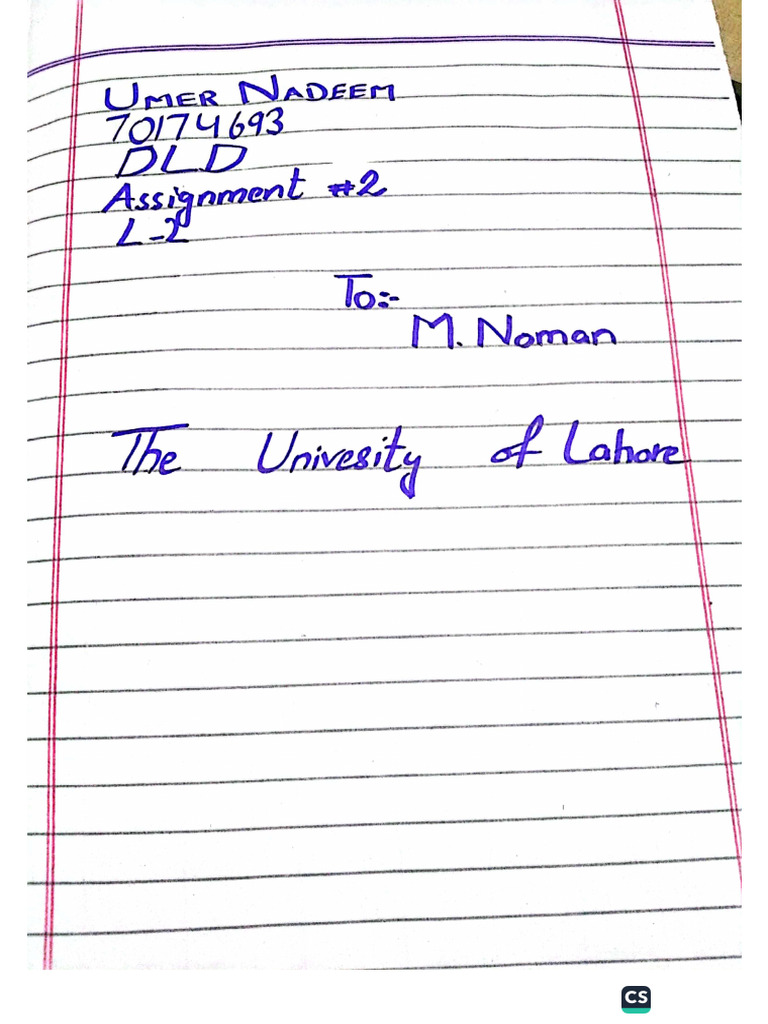 UMER NADEEM
70174693
DLD
Assignment #2
L-2
To:-
M. Noman
The Univesity of Lahore
CS